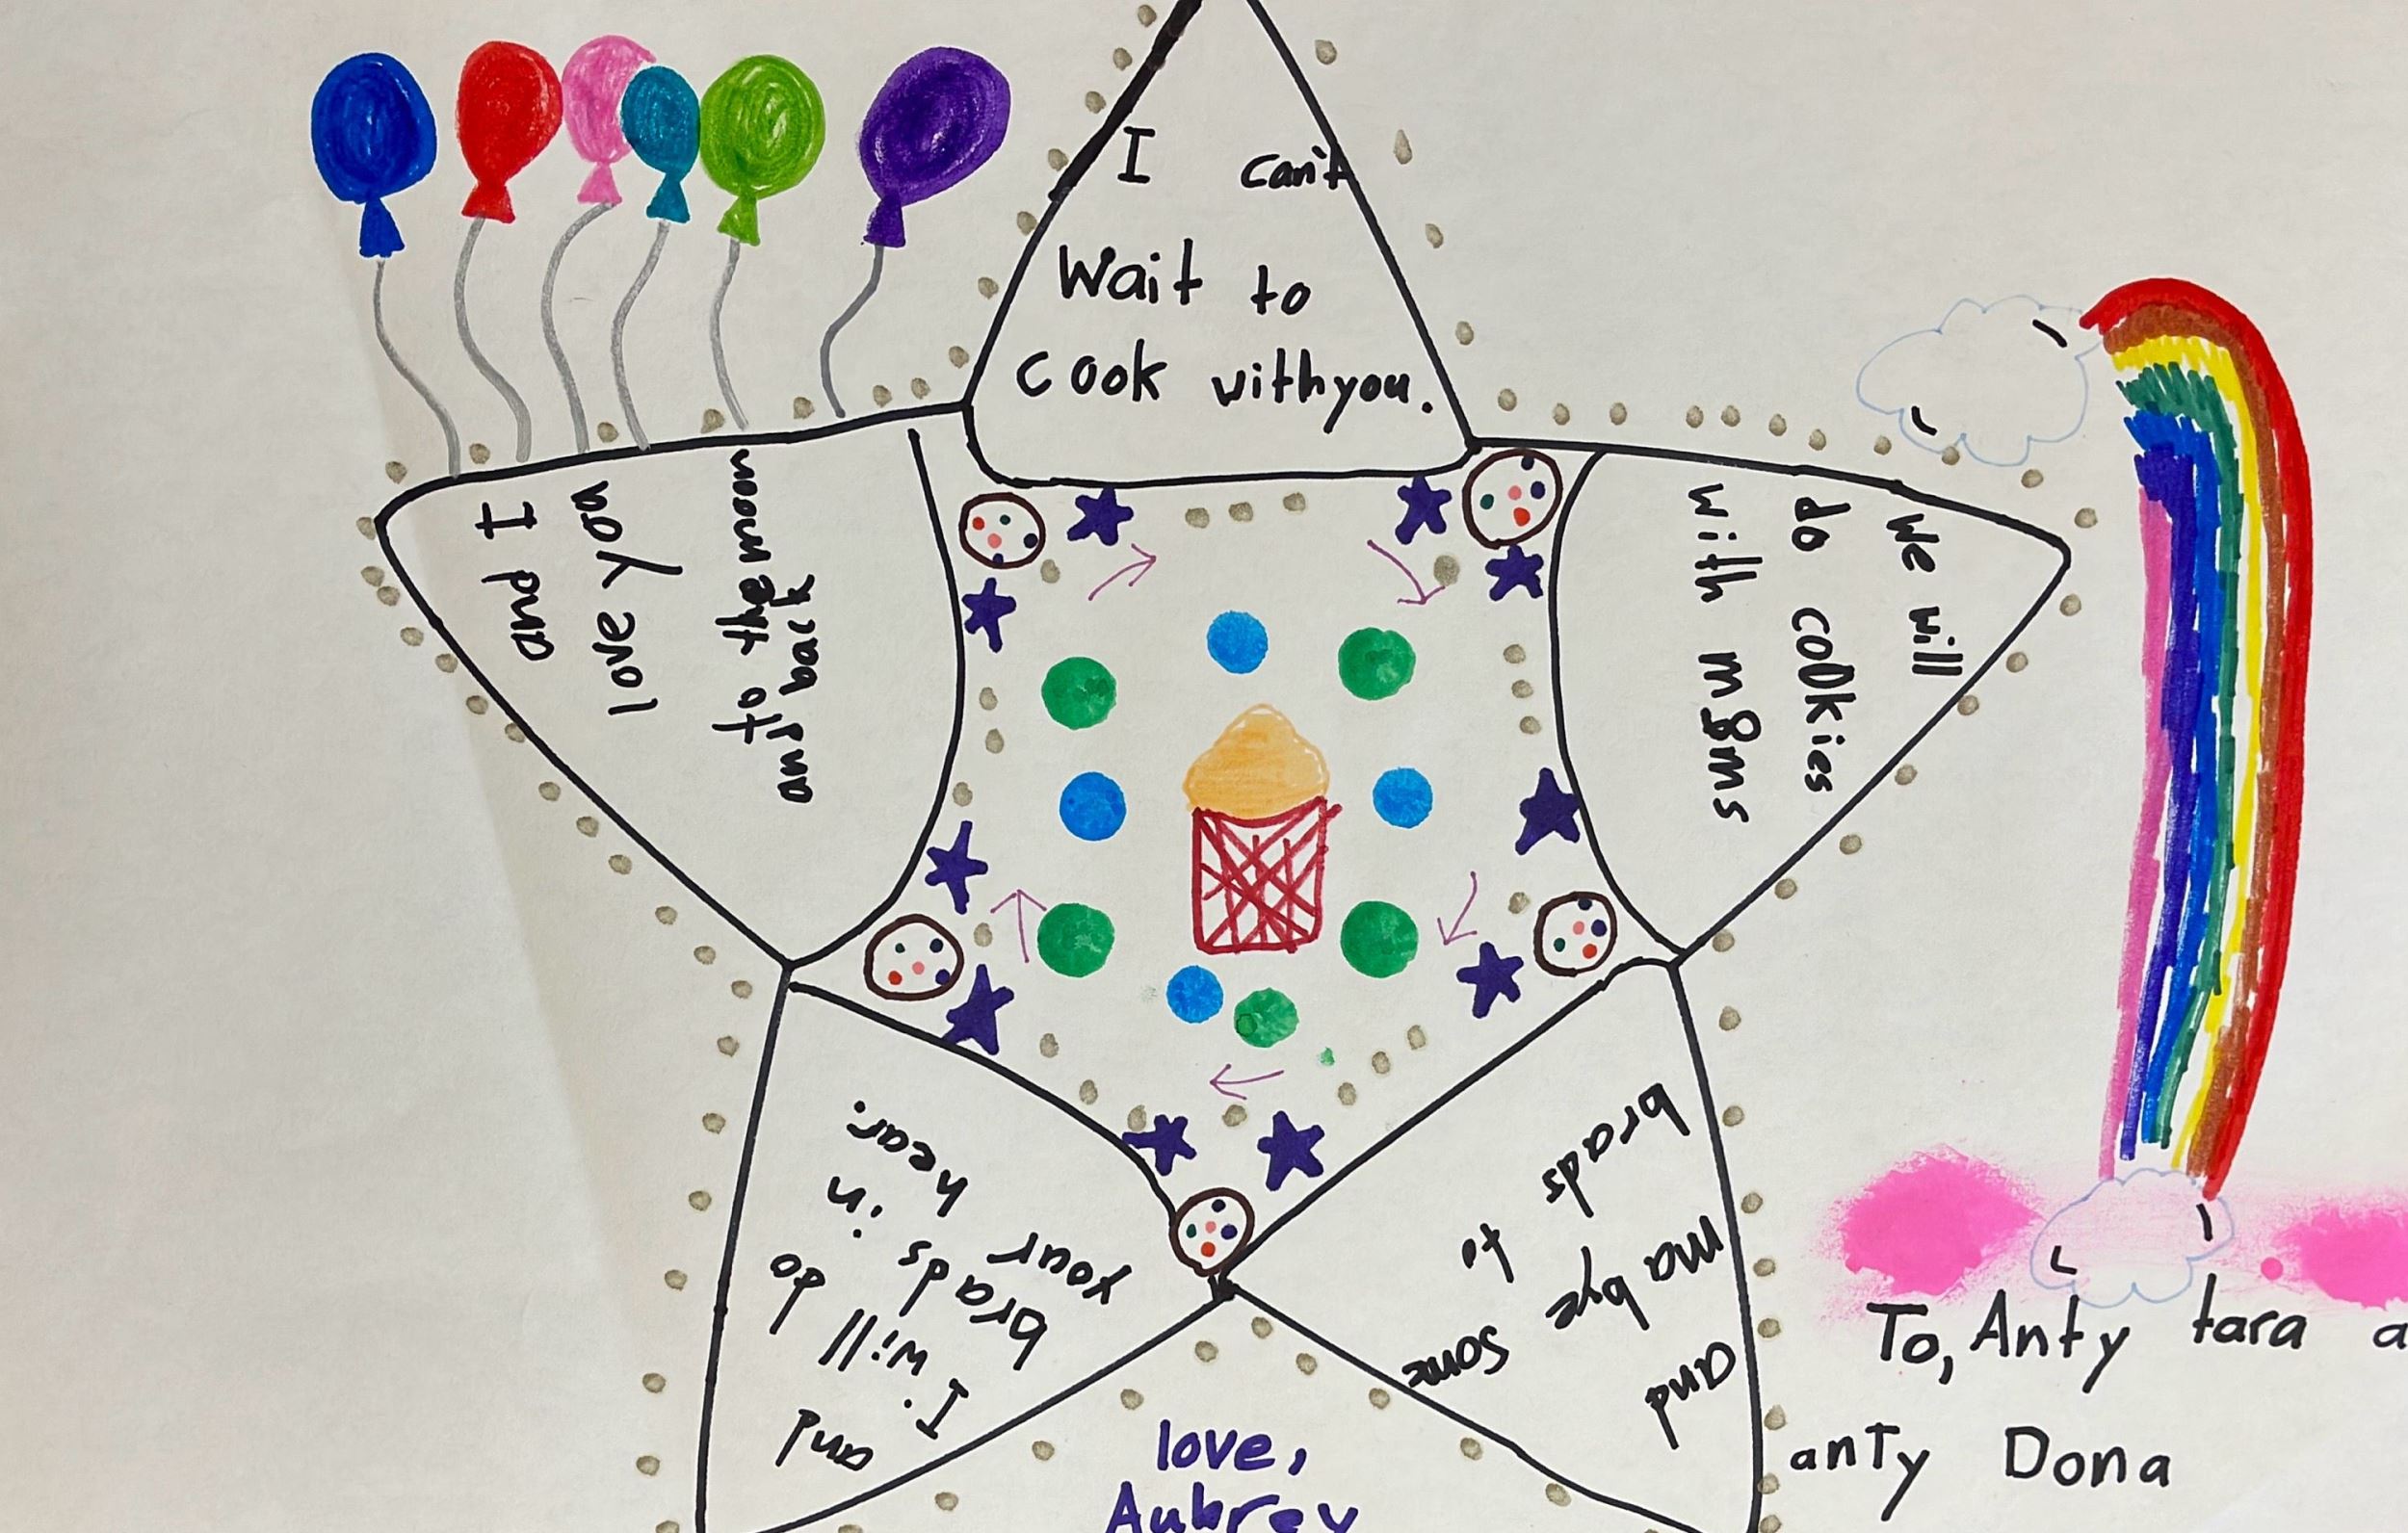 I can't
Wait to
cook withyou.
we will
do cookies
with mgms
and
ma bye some
brads to
and
I. will do
brads in
your hear.
and I
love you
to the moon
and back
love,
Aubrey
To, Anty tara a
anty Dona